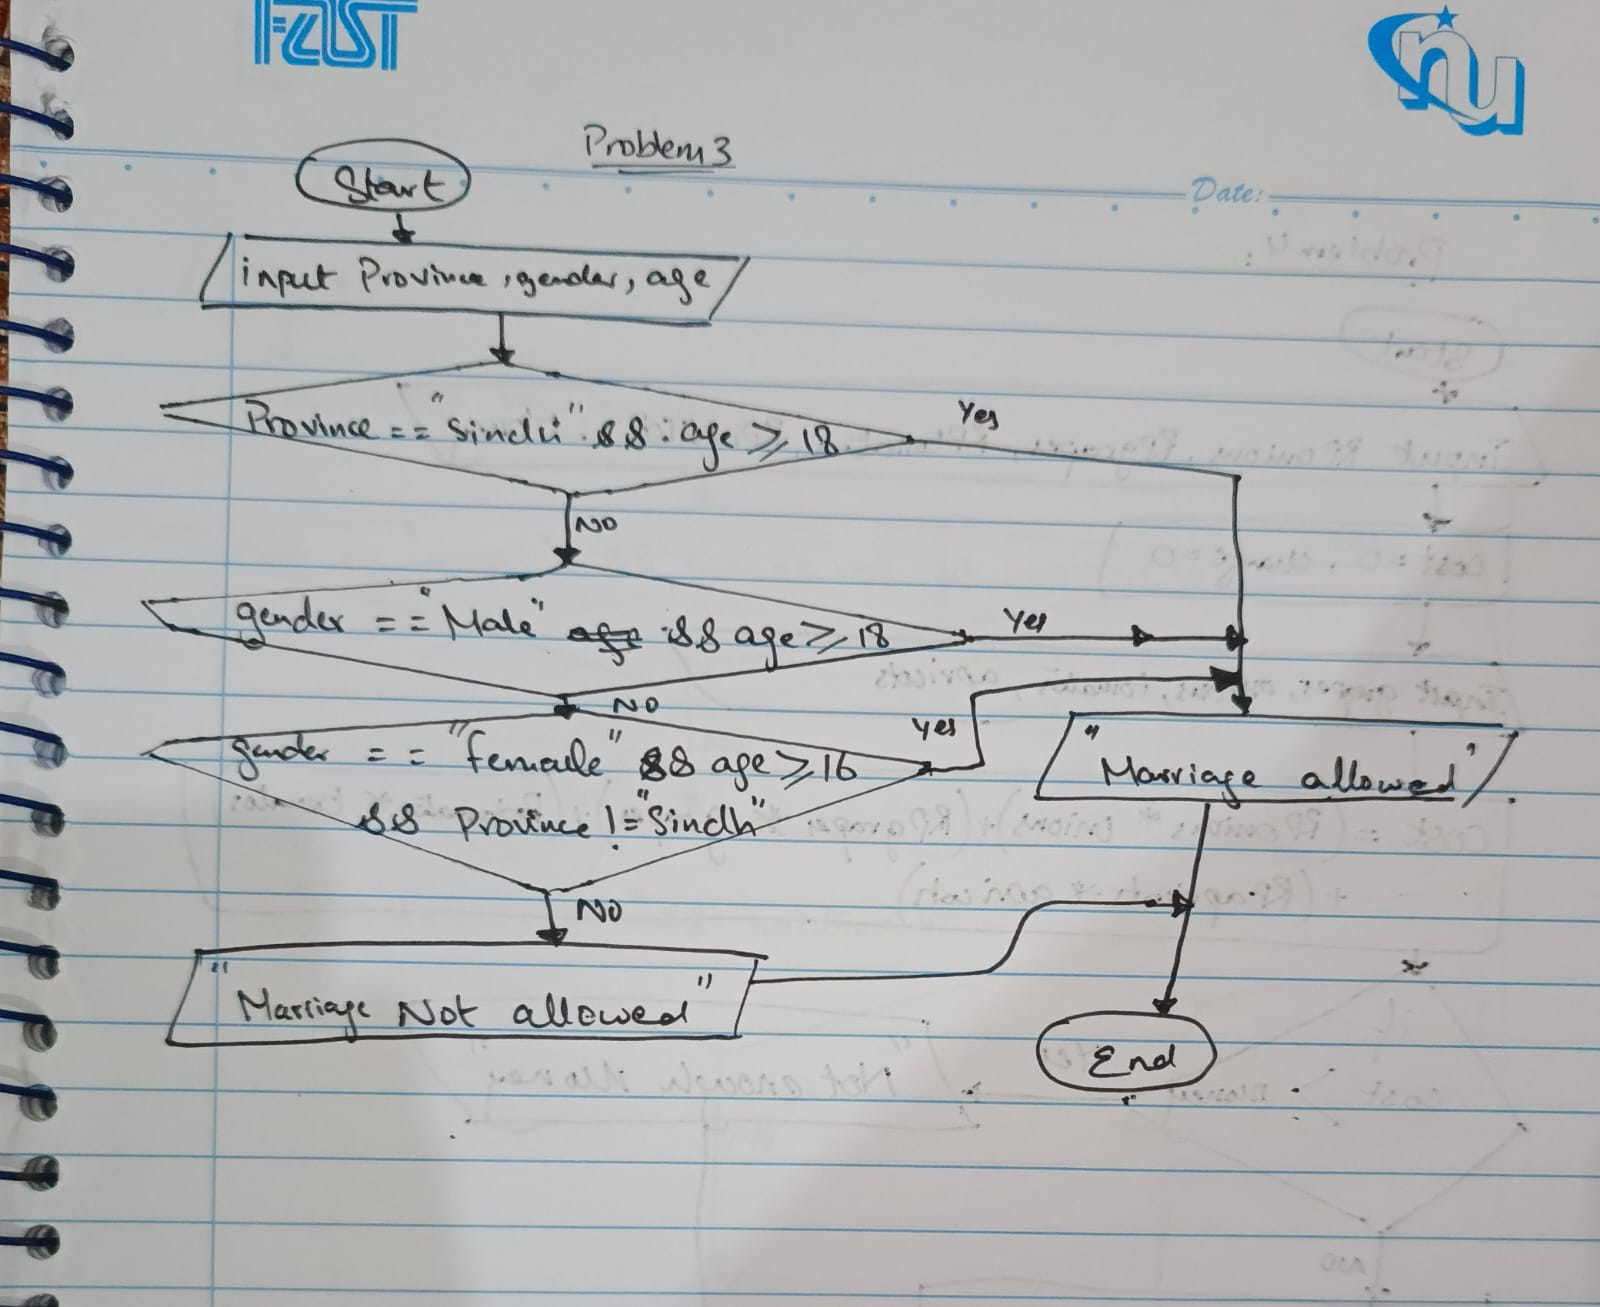 FAST
nu
Problem 3
Date:
Start
input Province, gender, age
Province == "Sindh" && age ≥ 18
Yes
NO
gender == "Male" && age ≥ 18
Yes
NO
gender == "female" && age ≥ 16
&& Province != "Sindh"
yes
"Marriage allowed"
NO
"Marriage Not allowed"
End